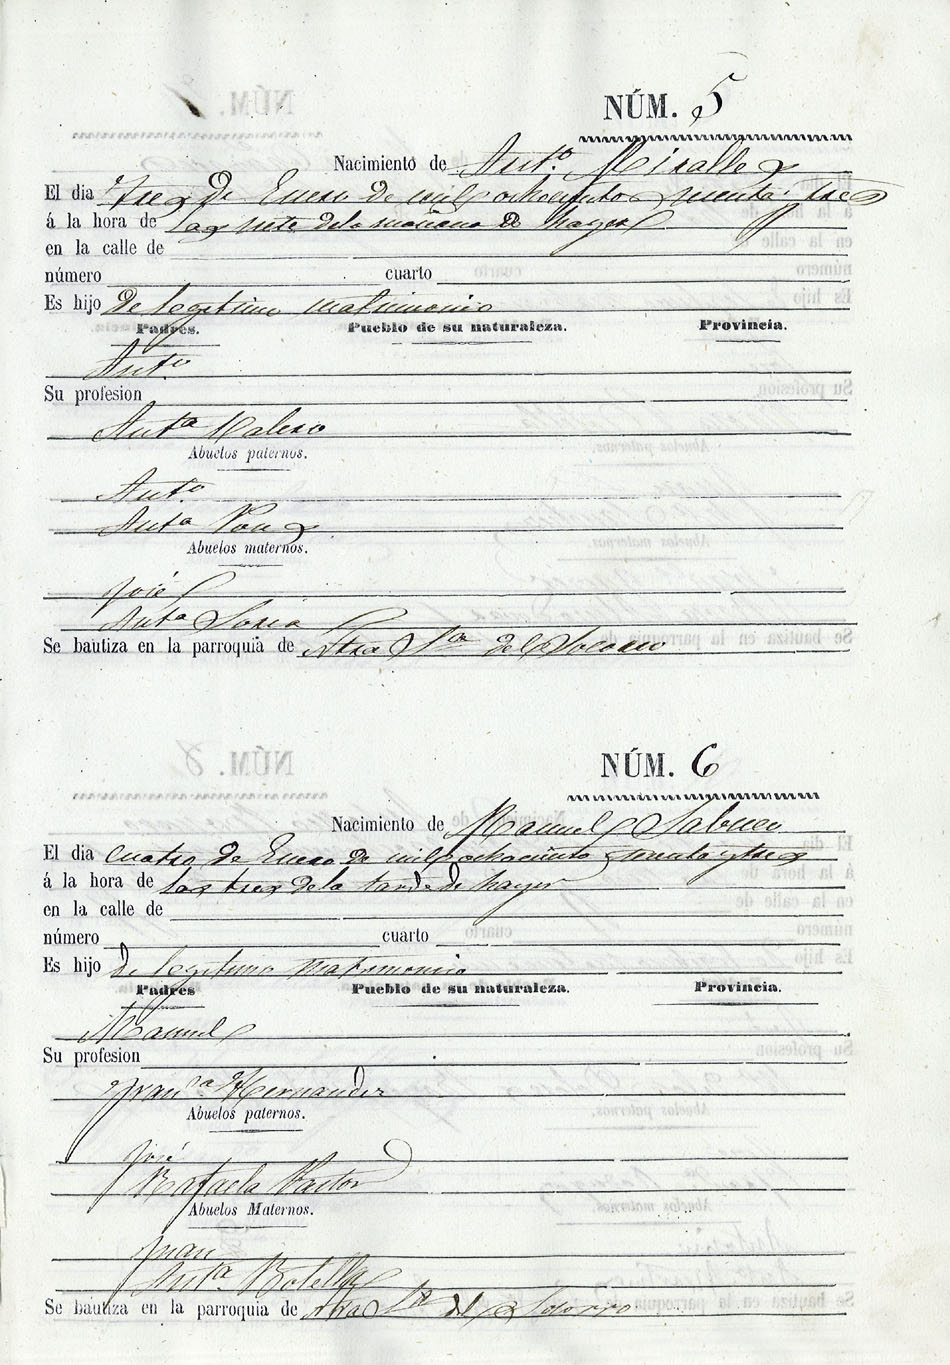 NÚM. 5
Nacimiento de Anto. Miralles
El dia Tres de Enero de mil ochocientos setenta y tres
á la hora de las siete de la mañana de hayer
en la calle de
número cuarto
Es hijo de legitimo matrimonio
Padres. Pueblo de su naturaleza. Provincia.
Anto
Su profesion
Anta Valero
Abuelos paternos.
Anto
Anta Pons
Abuelos maternos.
José
Anta Soria
Se bautiza en la parroquia de Ntra Sra del Socorro
NÚM. 6
Nacimiento de Manuel Sabuco
El dia cuatro de Enero de mil ochociento setenta y tres
á la hora de las tres de la tarde de hayer
en la calle de
número cuarto
Es hijo de legitimo matrimonio
Padres Pueblo de su naturaleza. Provincia.
Manuel
Su profesion
Franca Hernandez
Abuelos paternos.
José
Rafaela Pastor
Abuelos Maternos.
Juan
Anta Botella
Se bautiza en la parroquia de Ntra Sra del Socorro